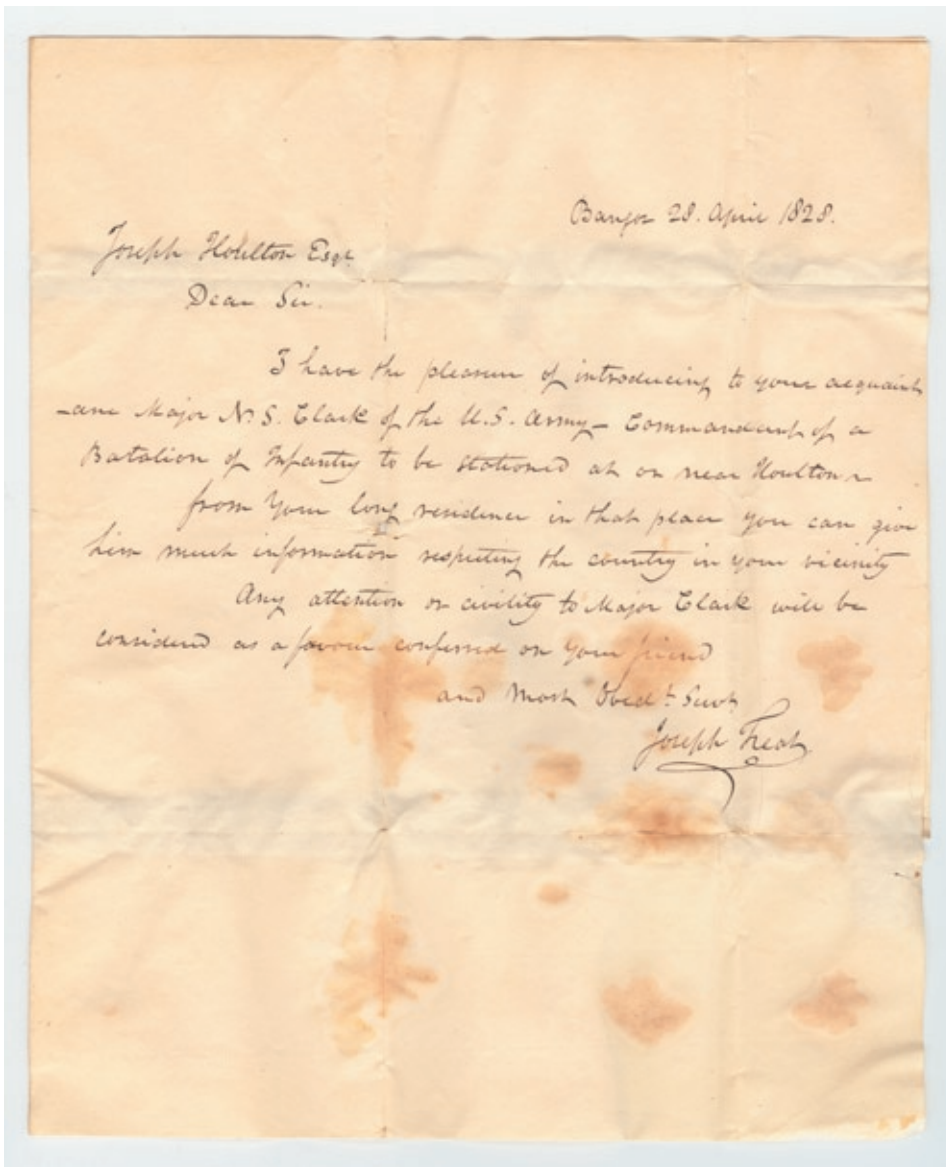 Bangor 28. April 1828.
Joseph Houlton Esqr.
Dear Sir.
I have the pleasure of introducing to your acquaint
-ance Major N. S. Clark of the U.S. Army - Commandant of a
Batalion of Infantry to be stationed at or near Houlton
from Your long residence in that place you can give
him much information respecting the country in your vicinity
Any attention or civility to Major Clark will be
considered as a favour conferred on your friend
and Most Obedt. Servt
Joseph Treat